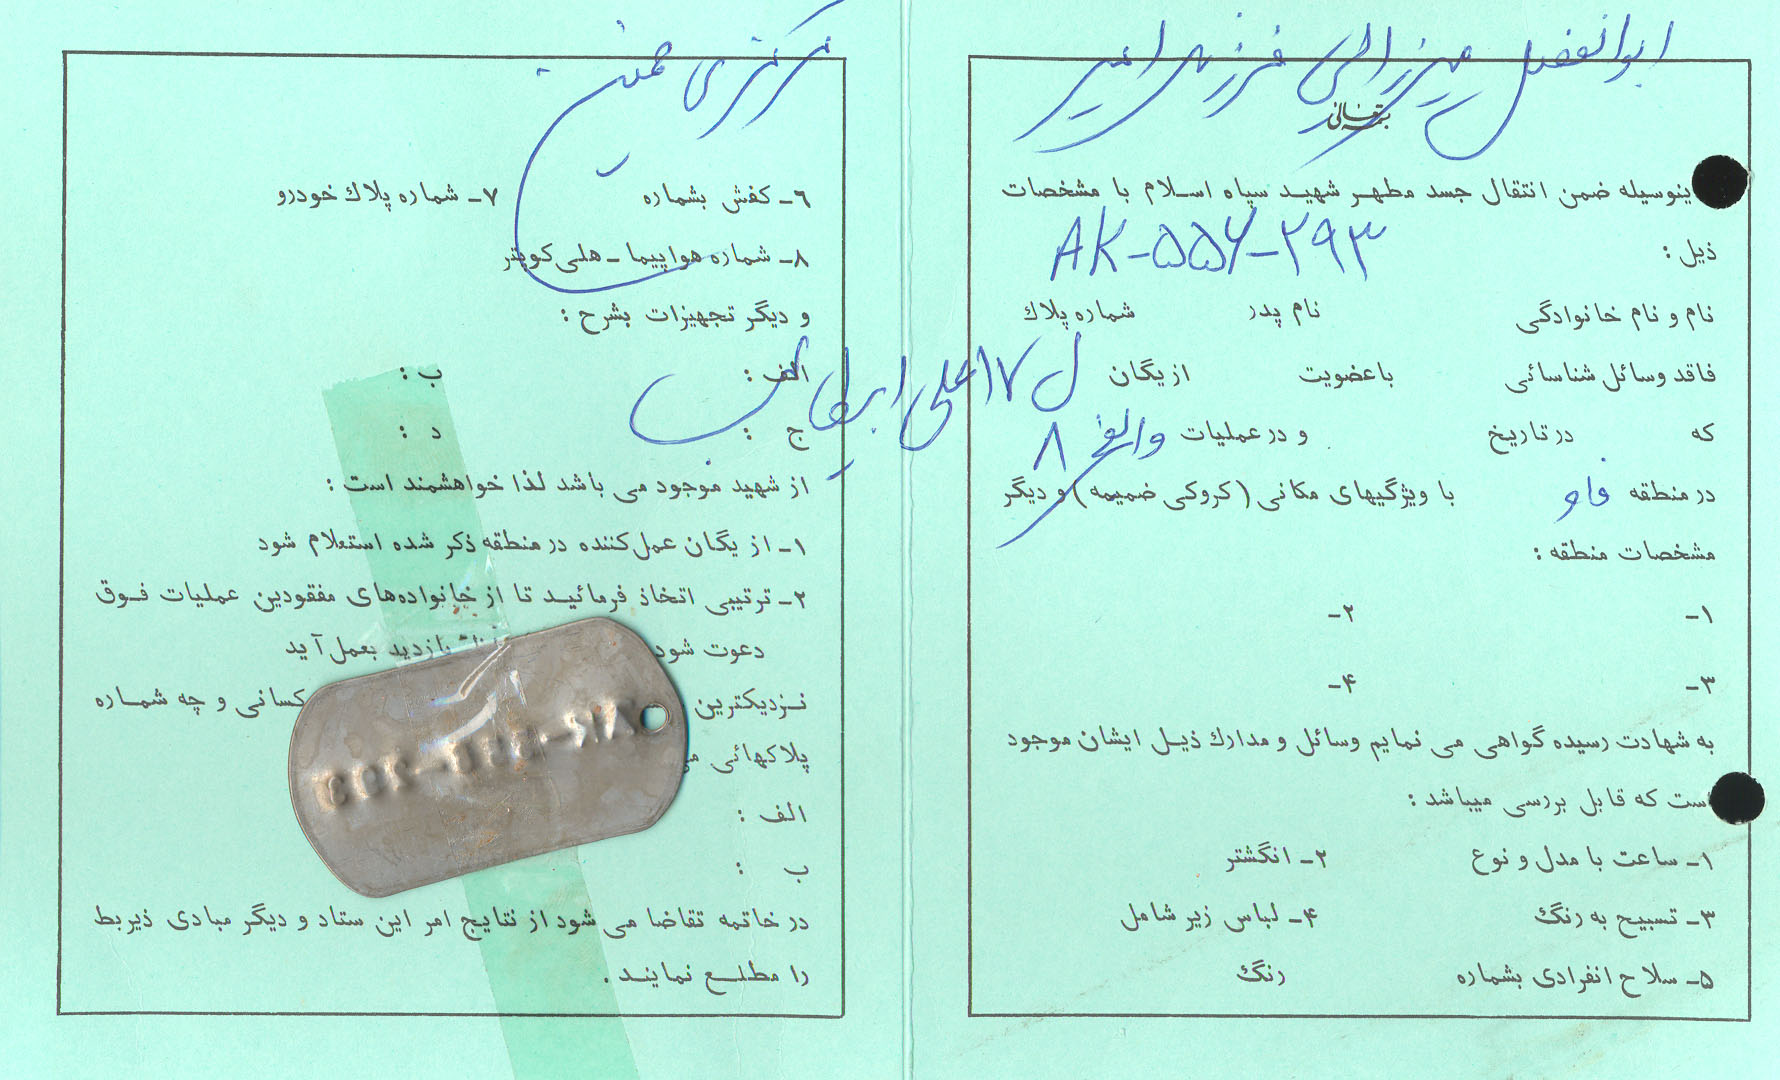 ابوالفضل میرزائی فرزند امیر
بسمه تعالی
ینوسیله ضمن انتقال جسد مطهر شهید سپاه اسلام با مشخصات
ذیل : AK-۵۵۶-۲۹۳
نام و نام خانوادگی نام پدر شماره پلاك
فاقد وسائل شناسائی باعضویت از یگان ل ۱۷ علی ابن
که در تاریخ و در عملیات والفجر ۸
در منطقه فاو با ویژگیهای مکانی (کروکی ضمیمه) و دیگر
مشخصات منطقه :
۱- ۲-
۳- ۴-
به شهادت رسیده گواهی می نمایم وسائل و مدارك ذیل ایشان موجود
است که قابل بررسی میباشد :
۱- ساعت با مدل و نوع ۲- انگشتر
۳- تسبیح به رنگ ۴- لباس زیر شامل
۵- سلاح انفرادی بشماره رنگ
۶- کفش بشماره ۷- شماره پلاك خودرو
۸- شماره هواپیما - هلی کوپتر
و دیگر تجهیزات بشرح :
الف : ب :
ج : د :
از شهید موجود می باشد لذا خواهشمند است :
۱- از یگان عمل کننده در منطقه ذکر شده استعلام شود
۲- ترتیبی اتخاذ فرمائید تا از خانواده‌های مفقودین عملیات فوق
دعوت شود بازدید بعمل آید
نزدیکترین کسانی و چه شماره
پلاکهائی
الف :
ب :
در خاتمه تقاضا می شود از نتایج امر این ستاد و دیگر مبادی ذیربط
را مطلع نمایند .
AK-556-293